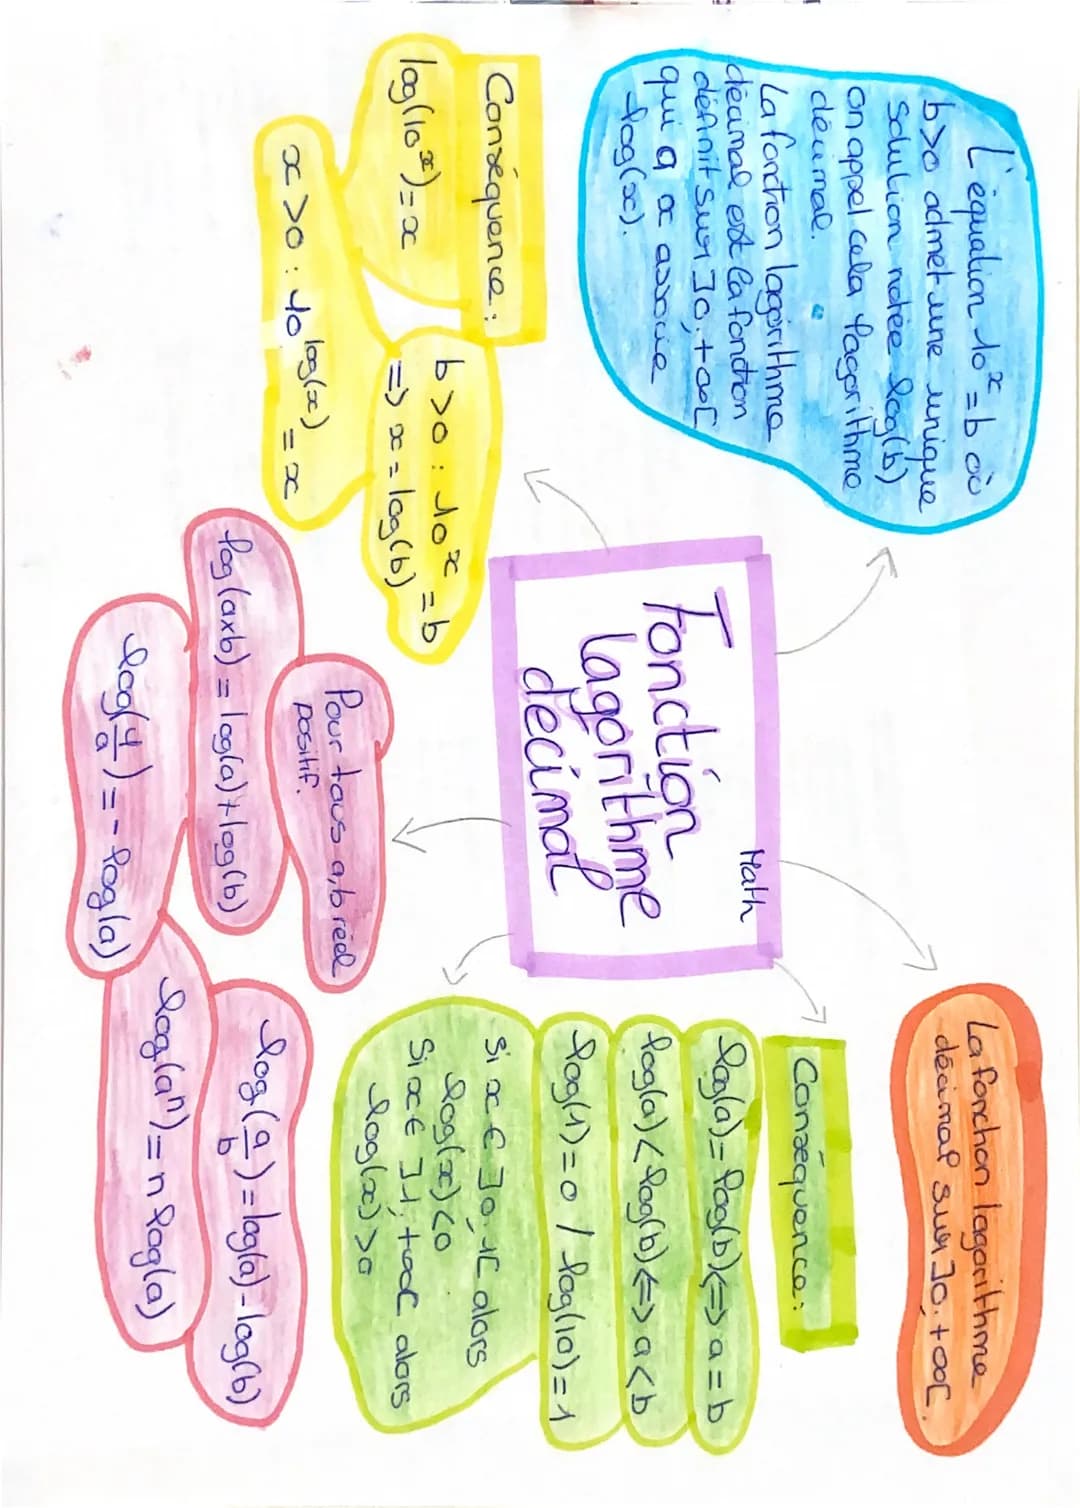 Math
Fonction
lagorithme
décimal
L'équation 10^x = b où
b>0 admet une unique
solution notée log(b)
on appel cela lagorithme
décimal.
La fonction lagorithme
décimal est la fonction
définit sur ]0;+∞[
qui a x associe
log(x).
Conséquence :
log(10^x) = x
b>0 : 10^x = b
=> x = log(b)
x>0 : 10^log(x) = x
Pour tous a,b réel
positif.
log(axb) = log(a)+log(b)
log(1/a) = - log(a)
log(a/b) = log(a)-log(b)
log(a^n) = n log(a)
La fonction lagorithme
décimal sur ]0;+∞[.
Conséquence :
log(a) = log(b) <=> a = b
log(a) < log(b) <=> a < b
log(1) = 0 / log(10) = 1
Si x ∈ ]0;1[ alors
log(x) < 0
Si x ∈ ]1;+∞[ alors
log(x) > 0